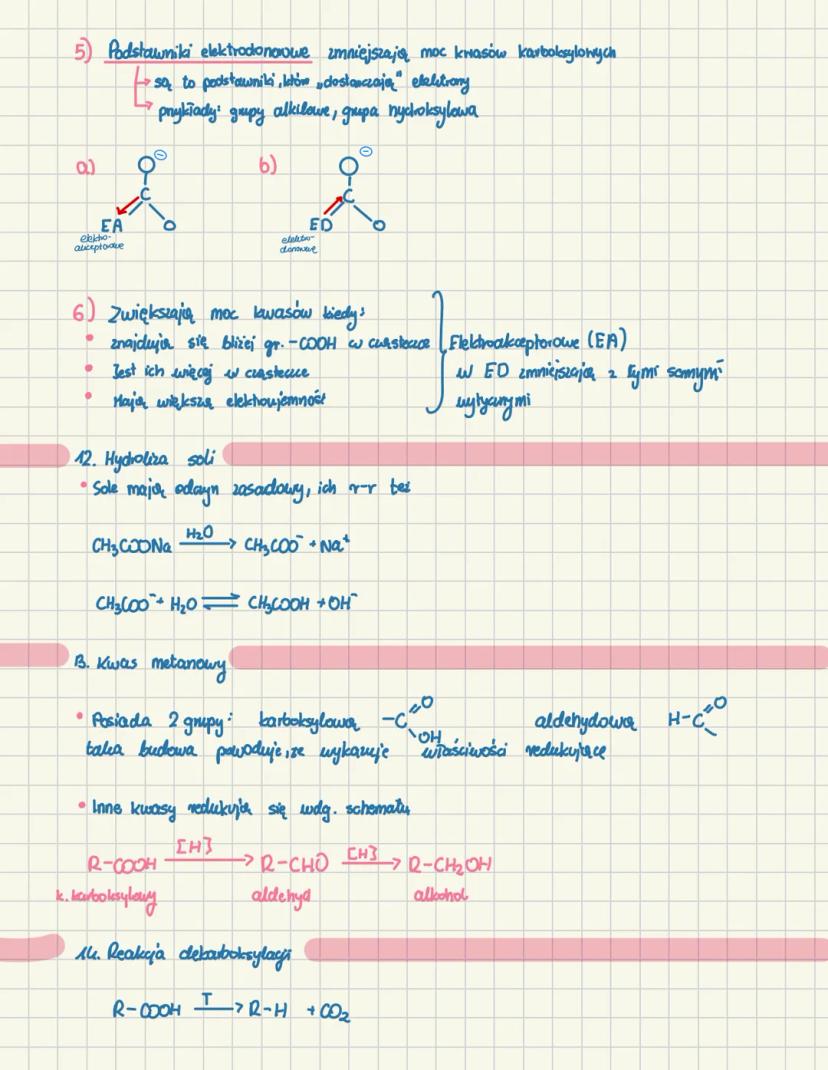 5) Podstawniki elektrodonorowe zmniejszają moc kwasów karboksylowych
są to podstawniki, które „dostarczają” elektrony
przykłady: grupy alkilowe, grupa hydroksylowa
a) b)
O⊖ O⊖
C C
EA O ED O
elektro-
akceptorowe
elektro-
donorowe
6) Zwiększają moc kwasów kiedy:
• znajdują się bliżej gr. -COOH w cząsteczce
• Jest ich więcej w cząsteczce
• Mają większą elektroujemność
Elektroakceptorowe (EA)
w ED zmniejszają z tymi samymi
wytycznymi
12. Hydroliza soli
• Sole mają odczyn zasadowy, ich r-r też
CH₃COONa H₂O→ CH₃COO⁻ + Na⁺
CH₃COO⁻ + H₂O ⇌ CH₃COOH + OH⁻
13. Kwas metanowy
• Posiada 2 grupy: karboksylową -C=O OH aldehydową H-C=O
taka budowa powoduje, że wykazuje właściwości redukujące
• Inne kwasy redukują się wdg. schematu
R-COOH [H]→ R-CHO [H]→ R-CH₂OH
k. karboksylowy aldehyd alkohol
14. Reakcja dekarboksylacji
R-COOH T→ R-H + CO₂